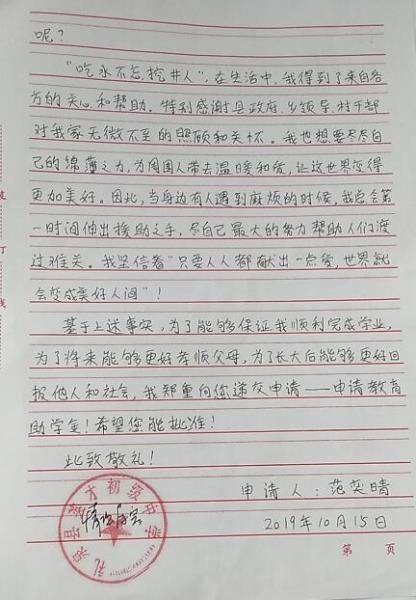 呢？
“吃水不忘挖井人”，在生活中，我得到了来自各
方的关心和帮助。特别感谢县政府、乡领导、村干部
对我家无微不至的照顾和关怀。我也想要尽尽自
己的绵薄之力，为周围人带去温暖和爱，让这世界变得
更加美好。因此，当身边有人遇到麻烦的时候，我总会第
一时间伸出援助之手，尽自己最大的努力帮助人们渡
过难关。我坚信着“只要人人都献出一点爱，世界就
会变成美好人间”！
基于上述事实，为了能够保证我顺利完成学业，
为了将来能够更好孝顺父母，为了长大后能够更好回
报他人和社会，我郑重向您递交申请——申请教育
助学金！希望您能批准！
此致敬礼！
申请人：范奕晴
2019年10月15日
情况属实
初级中学
第 页
装
订
线